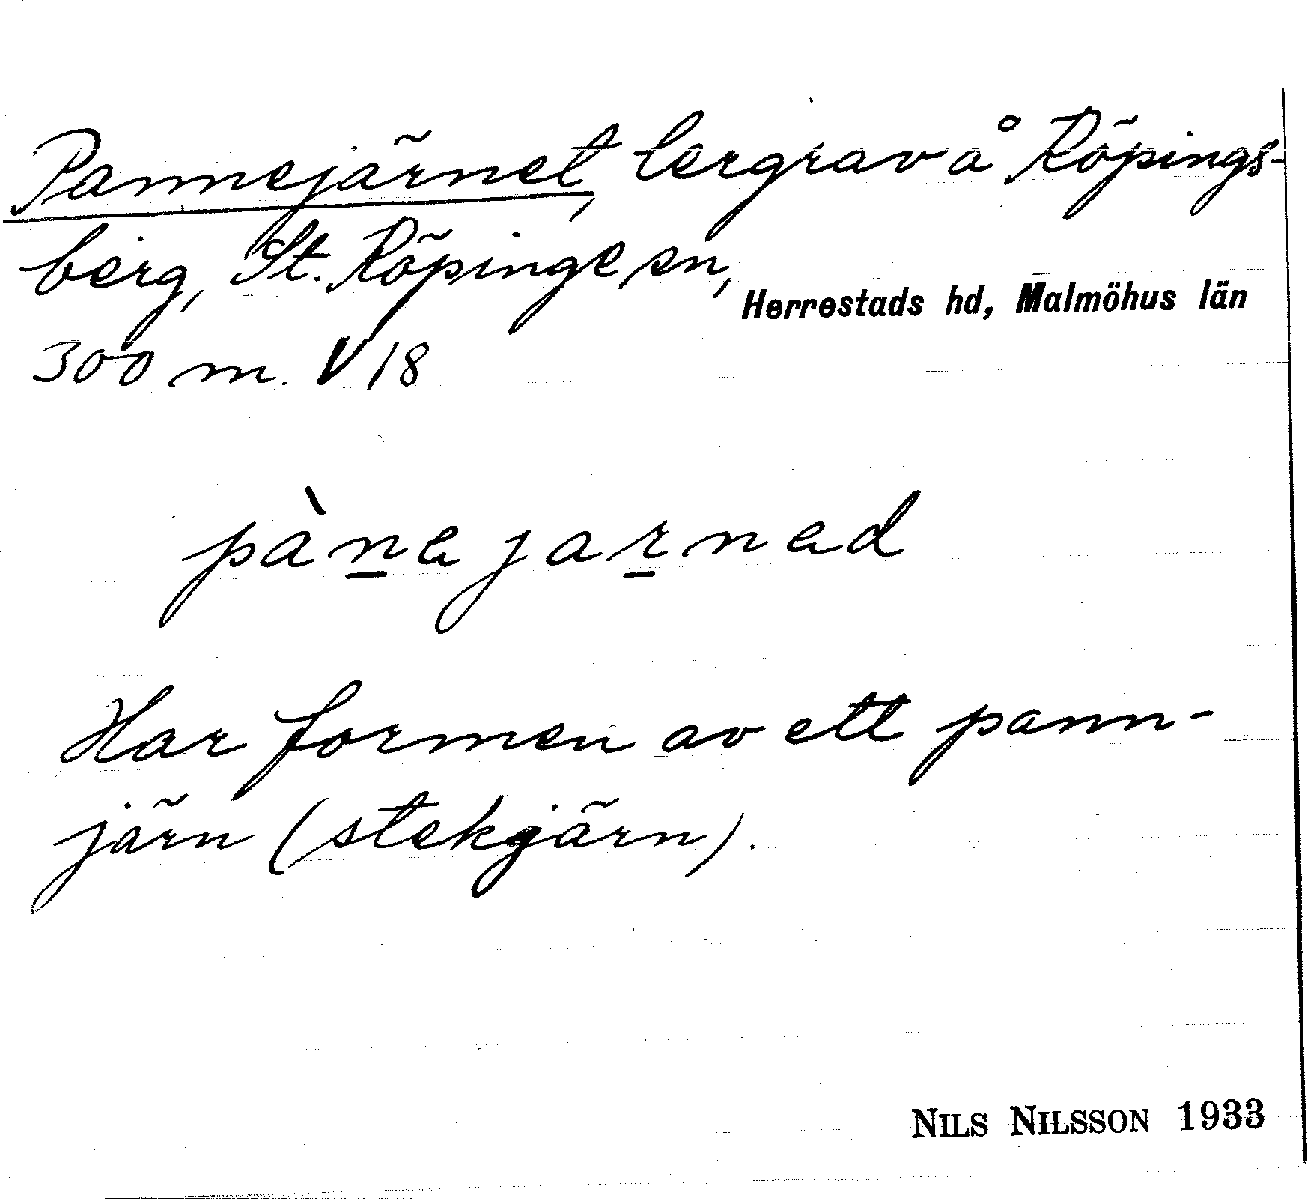 Pannejärnet, lergrav å Köpings-
berg, St. Köpinge sn,
Herrestads hd, Malmöhus län
300 m. V 18
pàn̲ejar̲nad
Har formen av ett pann-
järn (stekjärn).
NILS NILSSON 1933